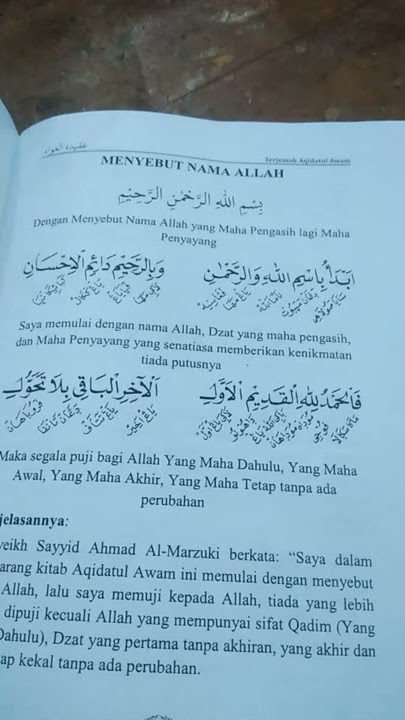 عقيدة العوام
Terjemah Aqidatul Awam
MENYEBUT NAMA ALLAH
بِسْمِ اللهِ الرَّحْمٰنِ الرَّحِيْمِ
Dengan Menyebut Nama Allah yang Maha Pengasih lagi Maha
Penyayang
اَبْدَأُ بِاسْمِ اللهِ وَالرَّحْمٰنِ وَبِالرَّحِيْمِ دَائِمِ الْاِحْسَانِ
Saya memulai dengan nama Allah, Dzat yang maha pengasih,
dan Maha Penyayang yang senatiasa memberikan kenikmatan
tiada putusnya
فَالْحَمْدُ لِلّٰهِ الْقَدِيْمِ الْاَوَّلِ الْاٰخِرِ الْبَاقِى بِلَا تَحَوُّلِ
Maka segala puji bagi Allah Yang Maha Dahulu, Yang Maha
Awal, Yang Maha Akhir, Yang Maha Tetap tanpa ada
perubahan
jelasannya:
yeikh Sayyid Ahmad Al-Marzuki berkata: “Saya dalam
arang kitab Aqidatul Awam ini memulai dengan menyebut
Allah, lalu saya memuji kepada Allah, tiada yang lebih
dipuji kecuali Allah yang mempunyai sifat Qadim (Yang
Dahulu), Dzat yang pertama tanpa akhiran, yang akhir dan
ap kekal tanpa ada perubahan.